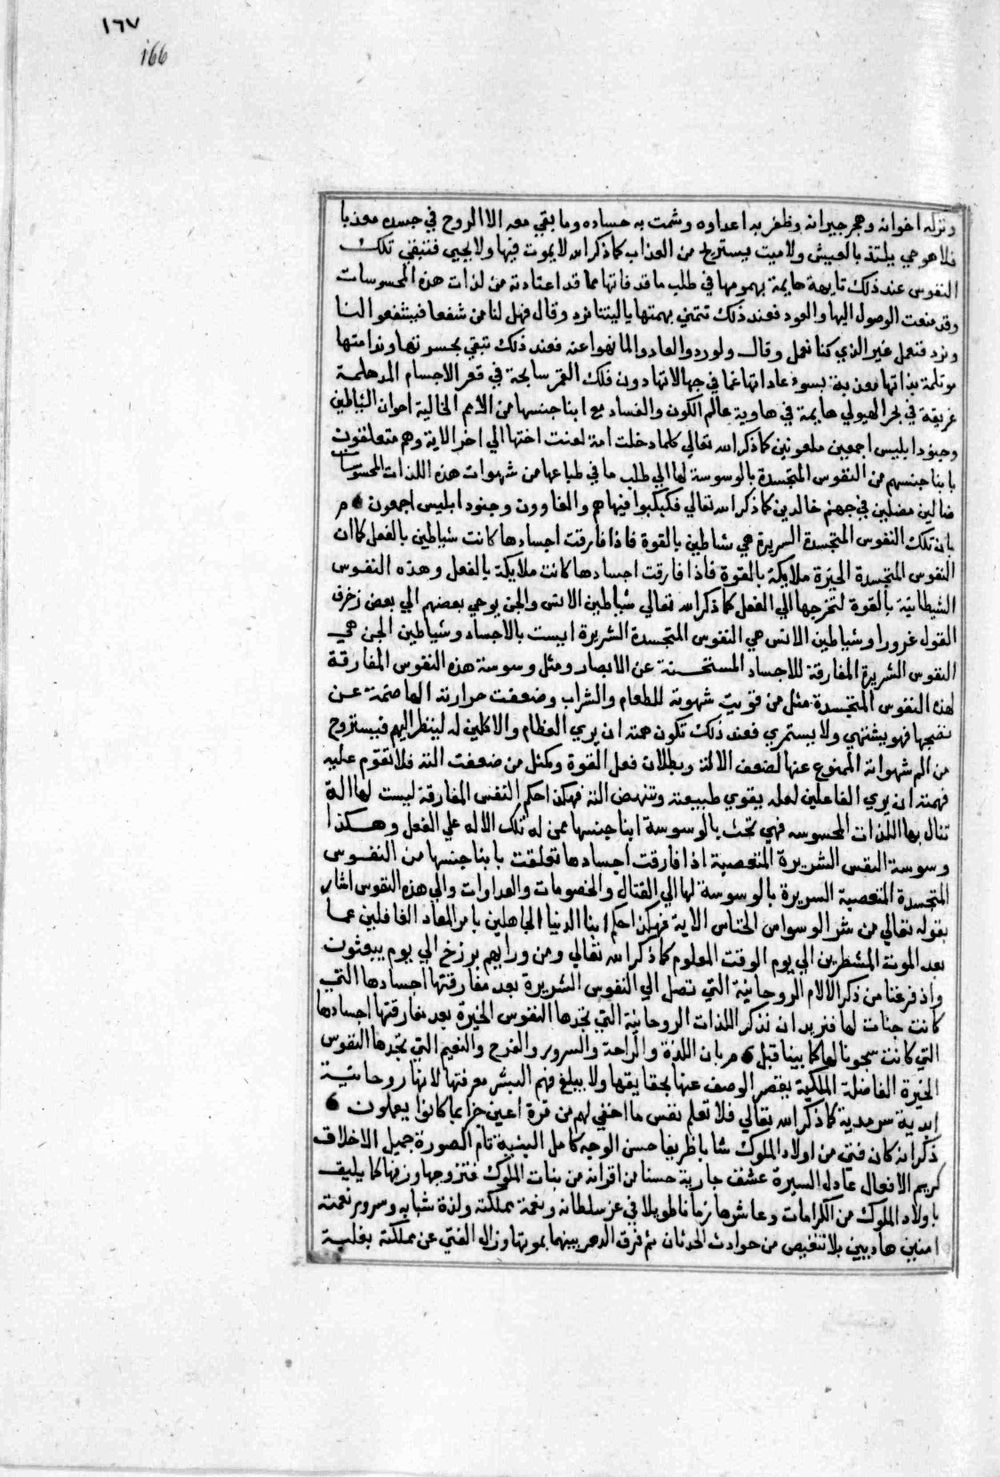 ١٦٧
166
وتركه اخوانه وهجر جيرانه وظفر به اعداوه وشمت به حساده وما بقي معه الا الروح في جسده معذبا
فلا هو حي يلتذ بالعيش ولا ميت يستريح من العذاب كما ذكر الله لا يموت فيها ولا يحيى فتبقي تلك
النفوس عند ذلك تايهة هايمة بهمومها في طلب ما قد فاتها مما قد اعتادته من لذات هذه المحسوسات
وقد منعت الوصول اليها والعود فعند ذلك تتمني بهمتها ياليتنا نرد وقال فهل لنا من شفعا فيشفعوا لنا
ونرد فنعمل غير الذي كنا نعمل وقال ولو ردوا لعادوا لما نهوا عنه فعند ذلك تبقي بحسرتها وندامتها
موتلمة بذاتها معذبة بسوء عاداتها عما في جهالاتها دون فلك القمر سايحة في قعر الاجسام المدهلمة
غريقة في بحر الهيولي هايمة في هاوية عالم الكون والفساد مع ابنا جنسها من الامم الخالية اخوان الشياطين
وجنود ابليس اجمعين ملعونين كما ذكر الله تعالي كلما دخلت امة لعنت اختها الي اخر الاية وهم متعلقون
بابنا جنسهم من النفوس المتجسدة بالوسوسة لها الي طلب ما في طباعها من شهوات هذه اللذات المحسوسات
ضالين مضلين في جهنم خالدين كما ذكر الله تعالي فكبكبوا فيها هم والغاوون وجنود ابليس اجمعون م
بان تلك النفوس المتجسدة السريرة هي شاطين بالقوة فاذا فارقت اجسادها كانت شياطين بالفعل كما ان
النفوس المتجسدة الخيرة ملايكة بالقوة فاذا فارقت اجسادها كانت ملايكة بالفعل وهذه النفوس
الشيطانية بالقوة لتخرجها الي الفعل كما ذكر الله تعالي شياطين الانس والجن يوحي بعضهم الي بعض زخرف
القول غرورا وشياطين الانس هي النفوس المتجسدة الشريرة ايست بالاجساد وشياطين الجن هي
النفوس الشريرة المفارقة للاجساد المستحنة عن الابصار ومثل وسوسة هذه النفوس المفارقة
لهذه النفوس المتجسدة مثل من قويت شهوته للطعام والشراب وضعفت حرارته الهاضمة عن
نضجها فهو يشتهي ولا يستمري فعند ذلك تكون همته ان يري الطعام والاكلين له لينظر اليهم فيستروح
من الم شهواته الممنوع عنها لضعف الالة وبطلان فعل القوة وكمثل من ضعفت الته فلا تقوم عليه
فهمته ان يري الفاعلين لعله يقوي طبيعته وتنهض الته فهكذا حكم النفس المفارقة ليست لها الة
تنال بها اللذات المحسوسه فهي تحث بالوسوسة ابنا جنسها ممن له تلك الاله علي الفعل وهكذا
وسوسة النفس الشريرة المتعصبة اذا فارقت اجسادها تعلقت بابنا جنسها من النفوس
المتجسدة المتعصبة السريرة بالوسوسة لها الي القتال والخصومات والعداوات والي هذه النفوس اشار
بقوله تعالي من شر الوسواس الخناس الاية فهكذا حكم ابنا الدنيا الجاهلين بامر المعاد الغافلين عما
بعد الموت المنتظرين الي يوم الوقت المعلوم كما ذكر الله تعالي ومن ورايهم برزخ الي يوم يبعثون
واذ فرغنا من ذكر الالام الروحانية التي تصل الي النفوس الشريرة بعد مفارقتها اجسادها التي
كانت جنات لها فنريد ان نذكر اللذات الروحانية التي تجدها النفوس الخيرة بعد مفارقتها اجسادها
التي كانت سجونا لها كما بينا قبل م بان اللذة والراحة والسرور والفرح والنعيم التي تجدها النفوس
الخيرة الفاضلة الملكية يقصر الوصف عنها بحقايقها ولا يبلغ فهم البشر معرفتها لانها روحانية
ابدية سرمدية كما ذكر الله تعالي فلا تعلم نفس ما اخفي لهم من قرة اعين جزا بما كانوا يعملون
ذكر انه كان فتي من اولاد الملوك شابا ظريفا حسن الوجه كامل البنية تام الصورة جميل الاخلاق
كريم الافعال عادل السيرة عشق جارية حسنا من اقرانه من بنات الملوك فتزوجها وزفها كما يليق
باولاد الملوك من الكرامات وعاشرها زمانا طويلا في عز سلطانه ونعمة مملكته ولذة شبابه وسرور نعمته
امنين هاديين بلا تنغيص من حوادث الحدثان ثم فرق الدهر بينهما بموتها وزال الفتي عن مملكته بغلبة